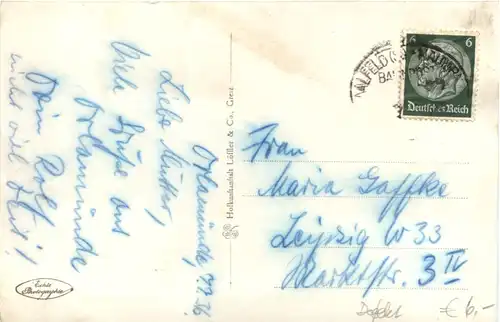 Orlamünde, 7.3.36.
Liebe Mutter,
Viele Grüße aus
Orlamünde
Dein Rolf.
nicht viel Heis!
Hofkunstanstalt Löffler & Co., Greiz
Echte
Photographie
6 6
Deutsches Reich
Frau
Maria Gaffke
Leipzig W 33
Marktstr. 3 IV
€ 6,-